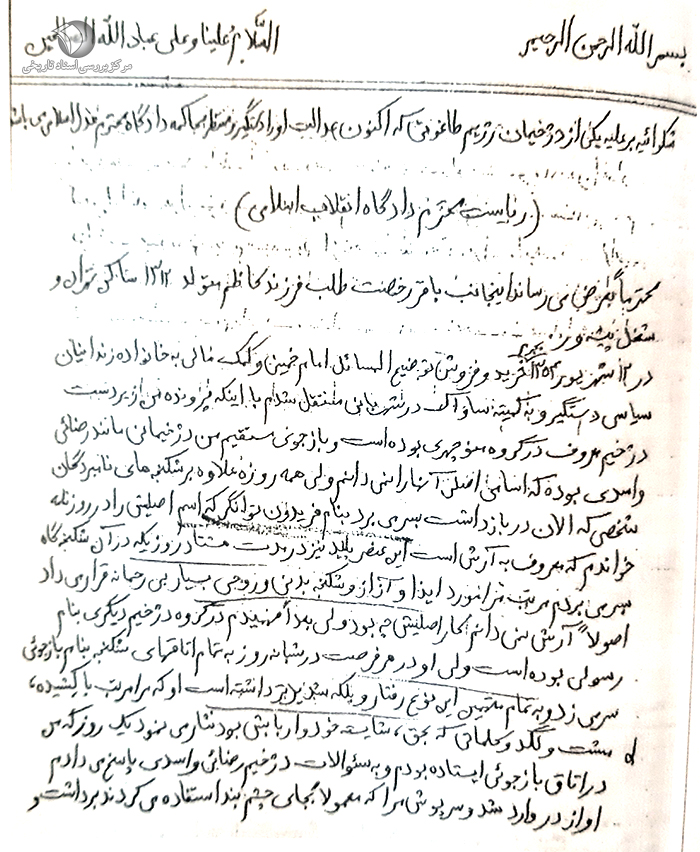 بسم الله الرحمن الرحیم
السلام علینا و علی عباد الله الصالحین
مرکز بررسی اسناد تاریخی
شکوائیه بر علیه یکی از دژخیمان رژیم طاغوتی که اکنون عدالت او را دستگیر و منتظر محاکمه دادگاه محترم عدل اسلامی می باشد
(ریاست محترم دادگاه انقلاب اسلامی)
محترماً بعرض می رساند اینجانب باقر رخصت طلب فرزند کاظم متولد ۱۳۱۲ ساکن تهران و
شغل پیشه ور
در ۱۲ شهریور ۱۳۵۳ بجرم خرید و فروش توضیح المسائل امام خمینی و کمک مالی به خانواده زندانیان
سیاسی دستگیر و به کمیته ساواک در شهربانی منتقل شدم با اینکه پرونده من از بردست
دژخیم معروف در گروه منوچهری بوده است و بازجوئی مستقیم من دژخیمانی مانند رضائی
و اسدی بوده که اسامی اصلی آنها را نمی دانم ولی همه روزه علاوه بر شکنجه های نامبردگان
شخصی که الان در بازداشت بسر می برد بنام فریدون توانگر که اسم اصلیش را در روزنامه
خواندم که معروف به آرش است این عنصر پلید نیز در مدت هشتاد روزیکه در آن شکنجه گاه
بسر می بردم مرتب مرا مورد ایذا و آزار و شکنجه بدنی و روحی بسیار بی رحمانه قرار می داد
اصولاً آرش نمی دانم کار اصلیش چه بود ولی بعداً فهمیدم در گروه دژخیم دیگری بنام
رسولی بوده است ولی او در هر فرصت در شبانه روز به تمام اتاقهای شکنجه بنام بازجوئی
سر می زد و به تمام متهمین این نوع رفتار و بلکه شدیدتر داشته است او که مرا مرتب با کشیده،
و مشت و لگد و کلماتی که بحق، شایسته خود و اربابش بود نثار می نمود یک روز که من
در اتاق بازجوئی ایستاده بودم و به سئوالات دژخیم رضائی و اسدی پاسخ می دادم
او از در وارد شد و سرپوش مرا که معمولا بجای چشم بند استفاده می کردند برداشت و